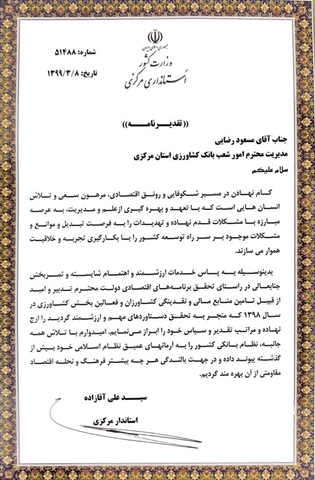 جمهوری اسلامی ایران
وزارت کشور
استانداری مرکزی
شماره: ۵۱۴۸۸
تاریخ: ۱۳۹۹/۳/۸
((تقدیرنامه))
جناب آقای مسعود رضایی
مدیریت محترم امور شعب بانک کشاورزی استان مرکزی
سلام علیکم
گام نهادن در مسیر شکوفایی و رونق اقتصادی، مرهون سعی و تلاش
انسان هایی است که با تعهد و بهره گیری ازعلم و مدیریت، به عرصه
مبارزه با مشکلات قدم نهاده و تهدیدات را به فرصت تبدیل و موانع و
مشکلات موجود بر سر راه توسعه کشور را با بکارگیری تجربه و خلاقیت
هموار می سازند.
بدینوسیله به پاس خدمات ارزشمند و اهتمام شایسته و ثمربخش
جنابعالی در راستای تحقق برنامه‌های اقتصادی دولت محترم تدبیر و امید
از قبیل تامین منابع مالی و نقدینگی کشاورزان و فعالین بخش کشاورزی در
سال ۱۳۹۸ که منجر به تحقق دستاوردهای مهم و ارزشمند گردید را ارج
نهاده و مراتب تقدیر و سپاس خود را ابراز می‌نمایم. امیدوارم با تلاش همه
جانبه، نظام بانکی کشور را به آرمانهای عمیق نظام اسلامی خود بیش از
گذشته پیوند داده و در جهت بالندگی هر چه بیشتر فرهنگ و نحله اقتصاد
مقاومتی از آن بهره مند گردیم.
سید علی آقازاده
استاندار مرکزی